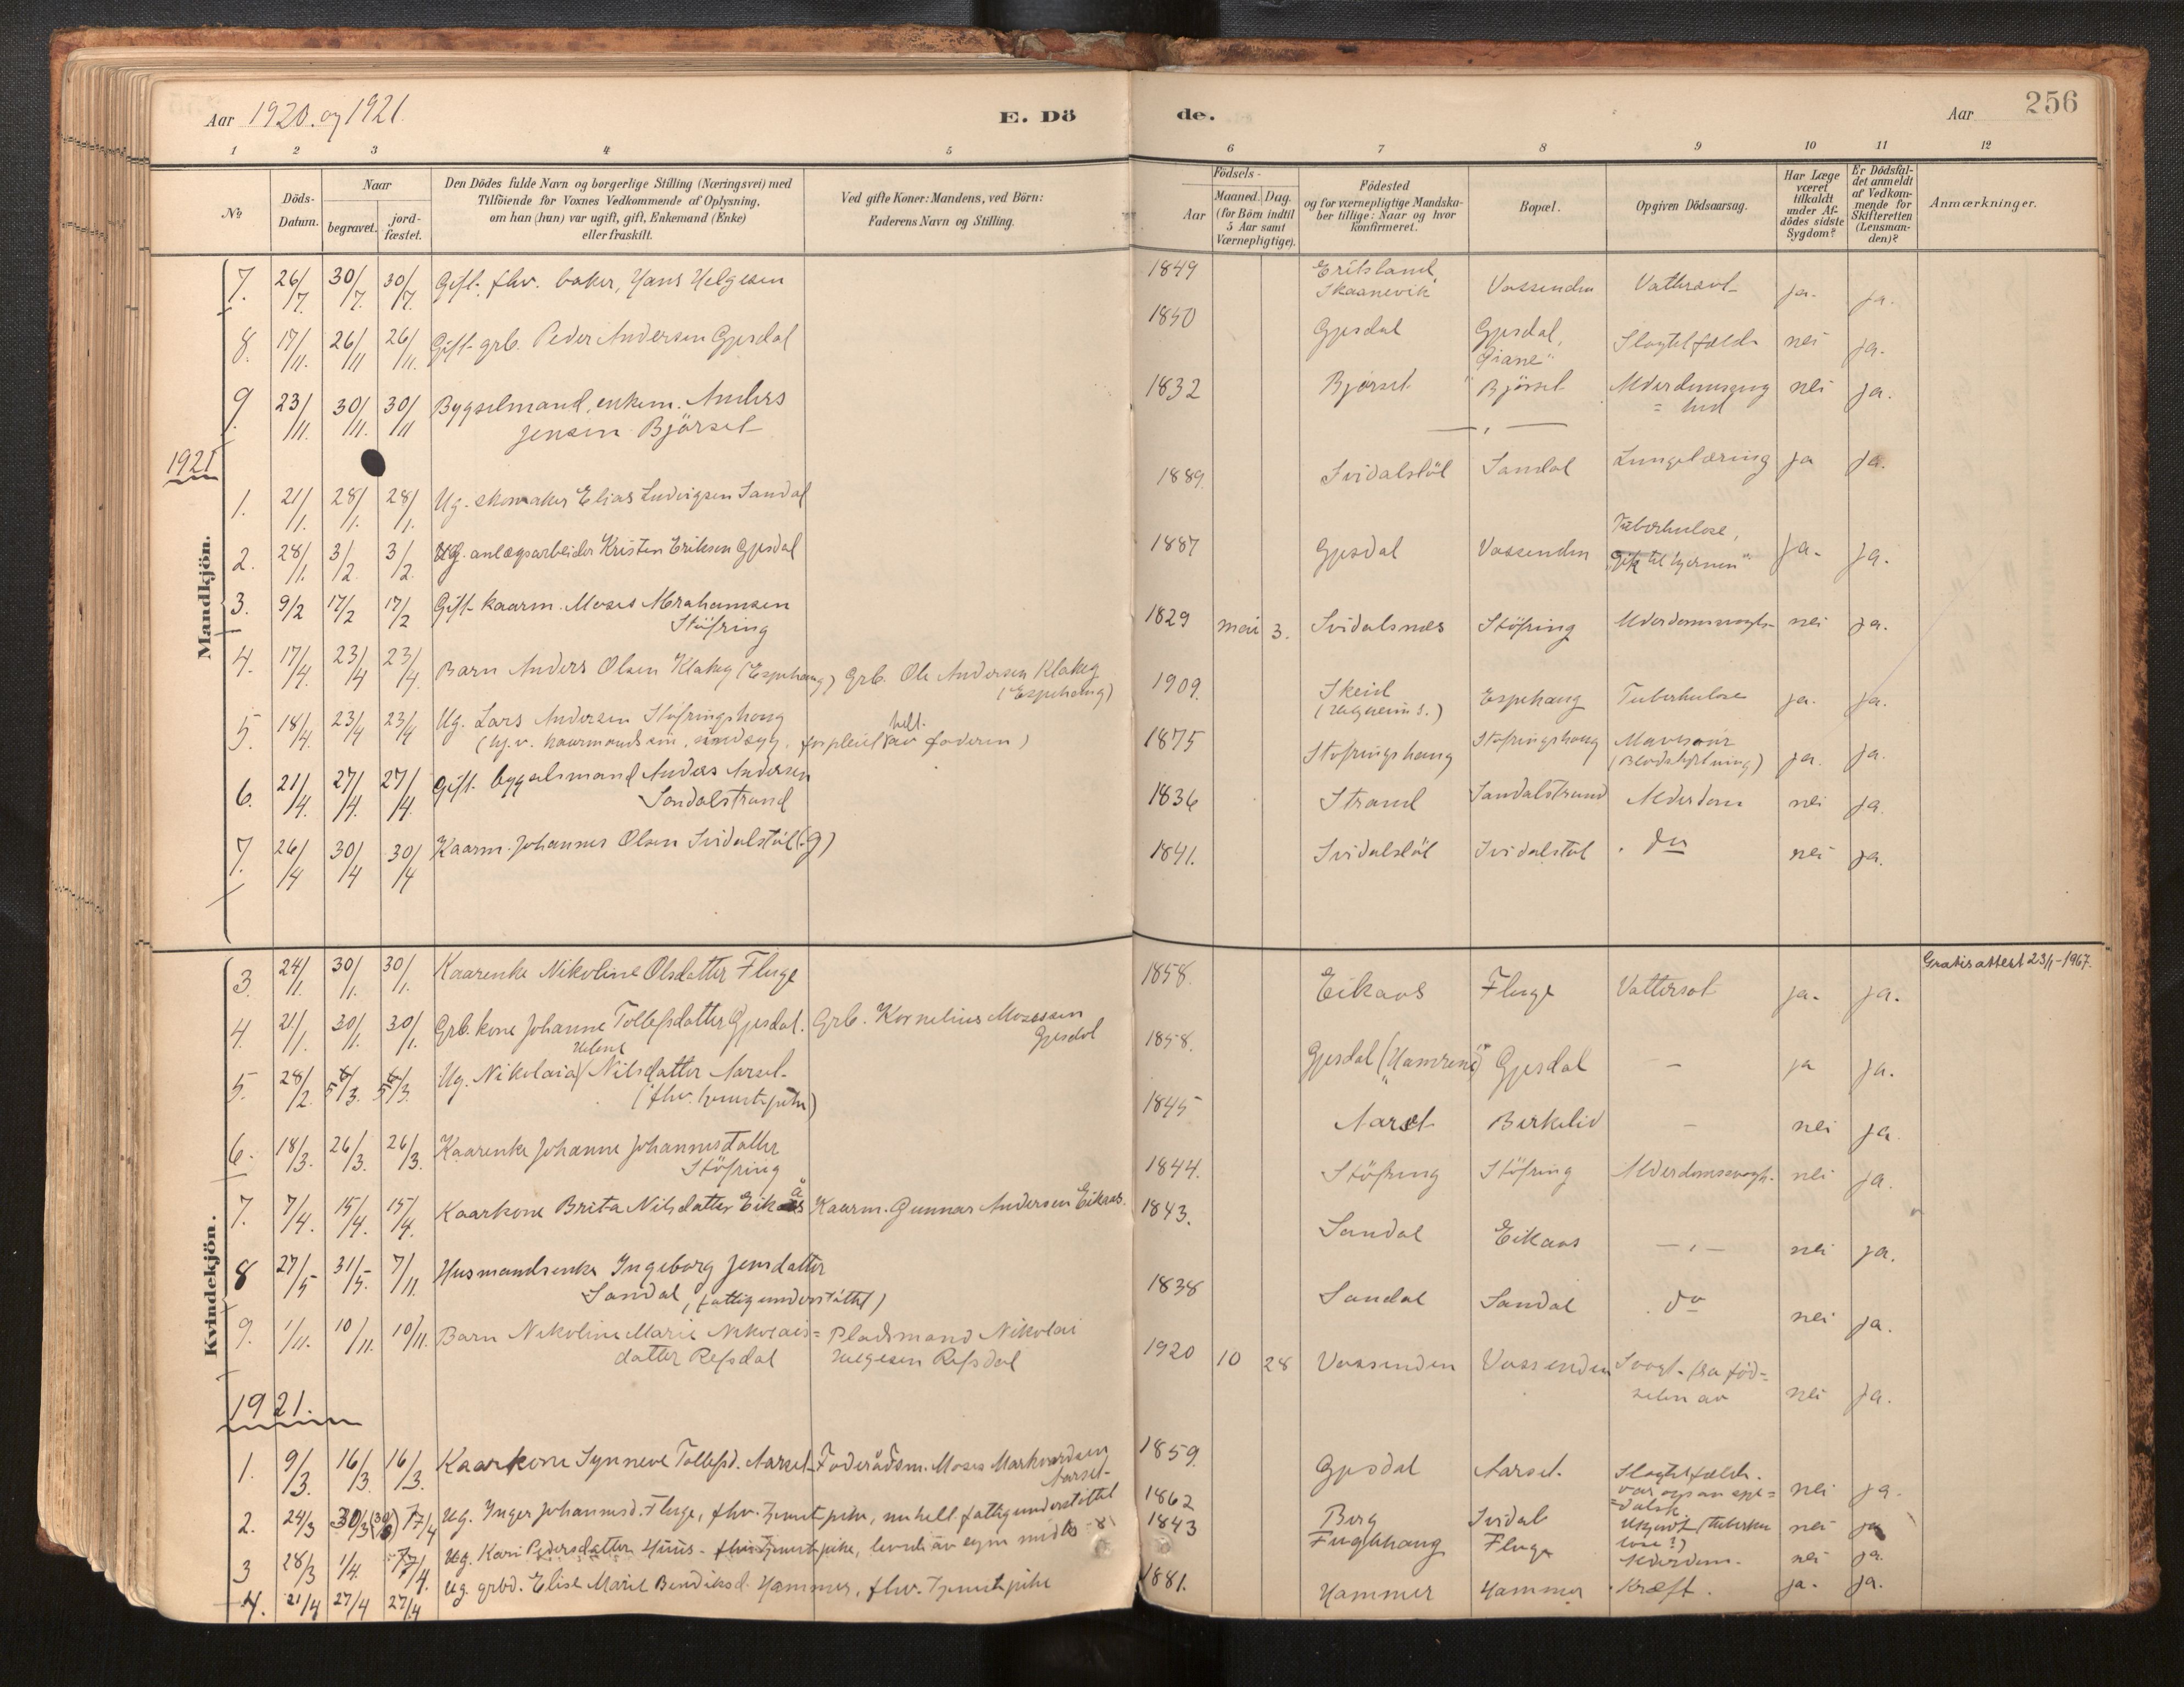 Aar 1920 og 1921.
E. Dö
de.
Aar
256
1 2 3 4 5 6 7 8 9 10 11 12
№
Döds-
Datum.
Naar
begravet.
jord-
fæstet.
Den Dödes fulde Navn og borgerlige Stilling (Næringsvei) med
Tilföiende for Voxnes Vedkommende af Oplysning,
om han (hun) var ugift, gift, Enkemand (Enke)
eller fraskilt.
Ved gifte Koner: Mandens, ved Börn:
Faderens Navn og Stilling.
Födsels-
Aar
Maaned. Dag.
(for Börn indtil
5 Aar samt
Værnepligtige).
Födested
og for værnepligtige Mandska-
ber tillige: Naar og hvor
konfirmeret.
Bopæl.
Opgiven Dödsaarsag.
Har Læge
været
tilkaldt
under Af-
dödes sidste
Sygdom?
Er Dödsfal-
det anmeldt
af Vedkom-
mende for
Skifteretten
(Lensman-
den)?
Anmærkninger.
Mandkjön.
7. 26/7. 30/7. 30/7. Gift. fhv. baker, Hans Helgesen 1849 Skaanevik Vassenden Vattersot ja. ja.
8. 17/11. 26/11 26/11. Gift grb. Peder Andersen Gjesdal 1850 Gjesdal Gjesdal, nei ja.
9. 23/11. 30/11. 30/11 Bygselmand, enkem. Anders
Jensen Bjørset 1832 Bjørset Bjørset nei ja.
1921
1. 21/1. 28/1. 28/1. Ug. skomaker Elias Ludvigsen Sandal 1889. Svidalstöl Sandal Lungetæring ja ja.
2. 28/1. 3/2 3/2. Ug. anlægsarbeider Kristen Eriksen Gjesdal 1887 Gjesdal Vassenden Tuberkulose,
"Gik til hjernen" ja. ja.
3. 9/2 17/2 17/2 Gift kaarm. Moses Abrahamsen
Støfring 1829 mai 3. Svidalsnæs Støfring Alderdomssvagh. nei ja.
4. 17/4. 23/4 23/4. Barn Anders Olsen Klakeg (Espehaug) Grb. Ole Andersen Klakeg
(Espehaug) 1909. Skeid
Espehaug Tuberkulose ja. ja.
5. 18/4. 23/4 23/4 Ug. Lars Andersen Støfringshaug
(hj.v. kaarmandssøn, sindssyg, forpleiet helt av faderen) 1875 Støfringshaug Støfringshaug Mavesaar
(Blodstyrtning) ja. ja.
6. 21/4. 27/4. 27/4. Gift. bygselmand Anders Andersen
Sandalstrand 1836 Strand Sandalstrand Alderdom nei ja.
7. 26/4 30/4 30/4 Kaarm. Johannes Olsen Svidalstöl (g) 1841. Svidalstöl Svidalstöl do nei ja.
Kvindekjön.
3. 24/1. 30/1. 30/1. Kaarenke Nikoline Olsdatter Fluge 1858. Eikaas Fluge Vattersot ja. ja. Gratisattest 23/1-1967.
4. 21/1. 30/1. 30/1. Grb.kone Johanne Tollefsdatter Gjesdal. Grb. Kornelius Mosessen
Gjesdal 1858. Gjesdal (Hamrene) Gjesdal – ja ja.
5. 28/2. 5/3. 5/3. Ug. Nikolaia Helene Nilsdatter Aarset
(fhv. tjenestpike) 1845 Aarset Birkelid – nei ja
6. 18/3. 26/3. 26/3. Kaarenke Johanne Johannesdatter
Støfring 1844. Støfring Støfring Alderdomssvagh. nei ja.
7. 7/4. 15/4. 15/4. Kaarkone Brita Nilsdatter Eikås Kaarm. Gunnar Andersen Eikaas. 1843. Sandal Eikaas –„– nei ja.
8 27/5 31/5. 7/11. Husmandsenke Ingeborg Jensdatter
Sandal, (fattigunderstøttet) 1838 Sandal Sandal do nei ja.
9. 1/11. 10/11. 10/11. Barn Nikoline Marie Nikolais=
datter Refsdal Pladsmand Nikolai
Helgesen Refsdal 1920 10 28 Vassenden Vassenden Svag fra fød=
selen av nei ja.
1921.
1. 9/3. 16/3. 16/3. Kaarkone Synneve Tollefsd. Aarset Føderådsm. Moses Markvardsen
Aarset 1859. Gjesdal Aarset. nei ja.
2. 24/3 30/3 17/4 Ug. Inger Johannesd. Fluge, fhv. tjenestpike, nu helt fattigunderstøttet 1862 Berg Svidal nei ja
3 28/3 1/4. 17/4. Ug. Kari Pedersdatter Huus fhv. tjenestpike, levde av egne midler 1843 Fuglehaug Fluge Alderdom. nei ja.
4. 21/4 27/4 27/4 Ug. grbd. Elise Marie Bendiksd. Hammer, fhv. tjenestpike 1881. Hammer Hammer Kræft. ja. ja.